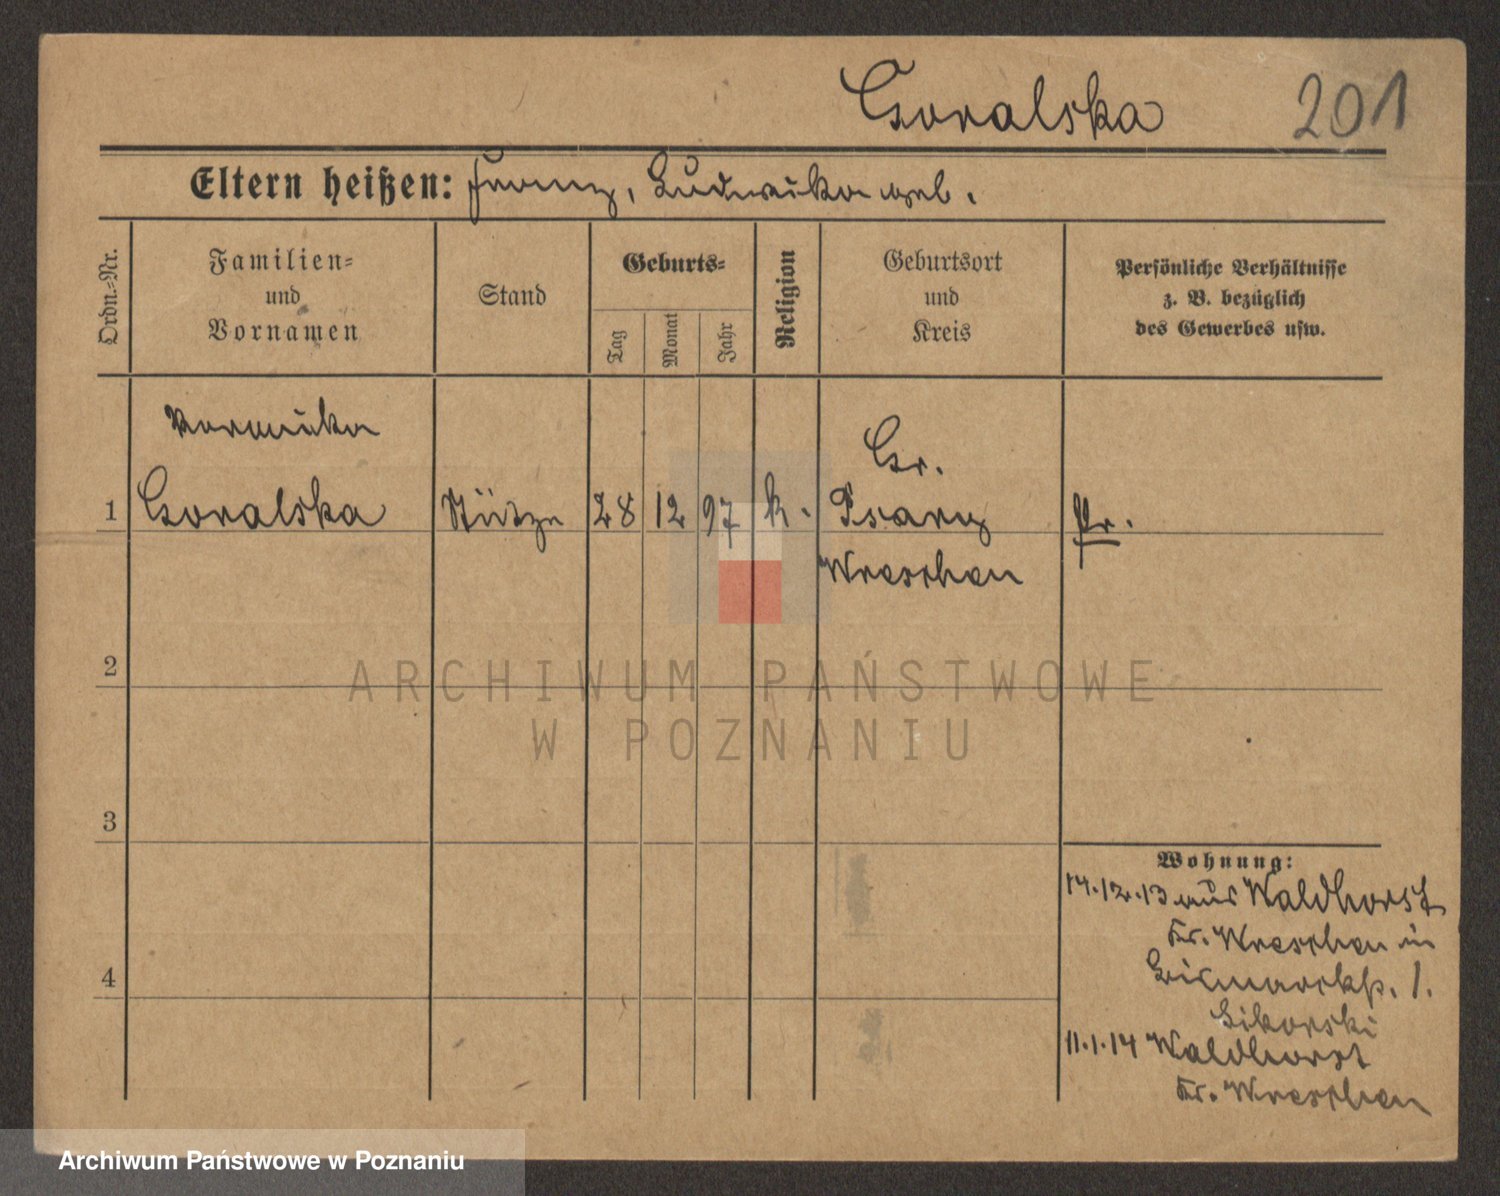 Goralska 201
Eltern heißen: Franz, Ludwika geb.
Ordn.-Nr.
Familien-
und
Vornamen
Stand
Geburts-
Tag
Monat
Jahr
Religion
Geburtsort
und
Kreis
Persönliche Verhältnisse
z. B. bezüglich
des Gewerbes usw.
Veronika
Gr.
1 Goralska Stütze 28 12 97 k. Psary Pr.
Wreschen
2
ARCHIWUM PAŃSTWOWE
W POZNANIU
3
Wohnung:
14.12.13 aus Waldhorst
Kr. Wreschen in
4 Bismarckstr. 1.
Sikorski
11.1.14 Waldhorst
Kr. Wreschen
Archiwum Państwowe w Poznaniu